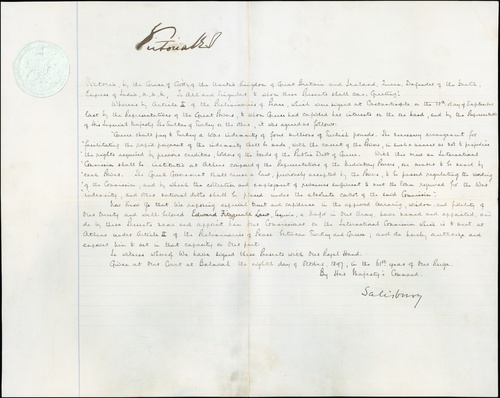 Victoria R&I
Victoria, by the Grace of God, of the United Kingdom of Great Britain and Ireland, Queen, Defender of the Faith,
Empress of India, &c., &c., &c., To All and Singular to whom these Presents shall come, Greeting!
Whereas by Article II of the Preliminaries of Peace, which were signed at Constantinople on the 18th day of September
last by the Representatives of the Great Powers, to whom Greece had confided her interests on the one hand, and by the Representative
of His Imperial Majesty the Sultan of Turkey on the other, it was agreed as follows:
"Greece shall pay to Turkey a War indemnity of four millions of Turkish pounds. The necessary arrangement for
facilitating the rapid payment of the indemnity shall be made, with the consent of the Powers, in such a manner as not to prejudice
the rights acquired by previous creditors, holders of the bonds of the Public Debt of Greece. With this view an International
Commission shall be instituted at Athens composed of the Representatives of the Mediating Powers, one member to be named by
each Power. The Greek Government shall cause a law, previously accepted by the Powers, to be passed regulating the working
of the Commission, and by which the collection and employment of revenues sufficient to meet the loan required for the War
indemnity, and other national debts shall be placed under the absolute control of the said Commission."
Now know Ye that We reposing especial trust and confidence in the approved learning, wisdom, and fidelity of
Our Trusty and well beloved Edward Fitzgerald Law, Esquire, a Major in Our Army, have named and appointed, and
do by these Presents name and appoint him Our Commissioner on the International Commission which is to meet at
Athens under Article II of the Preliminaries of Peace between Turkey and Greece; and do hereby authorize and
empower him to act in that capacity on Our part.
In witness whereof We have signed these Presents with Our Royal Hand.
Given at Our Court at Balmoral the eighth day of October, 1897, in the 61st year of Our Reign.
By Her Majesty's Command.
Salisbury